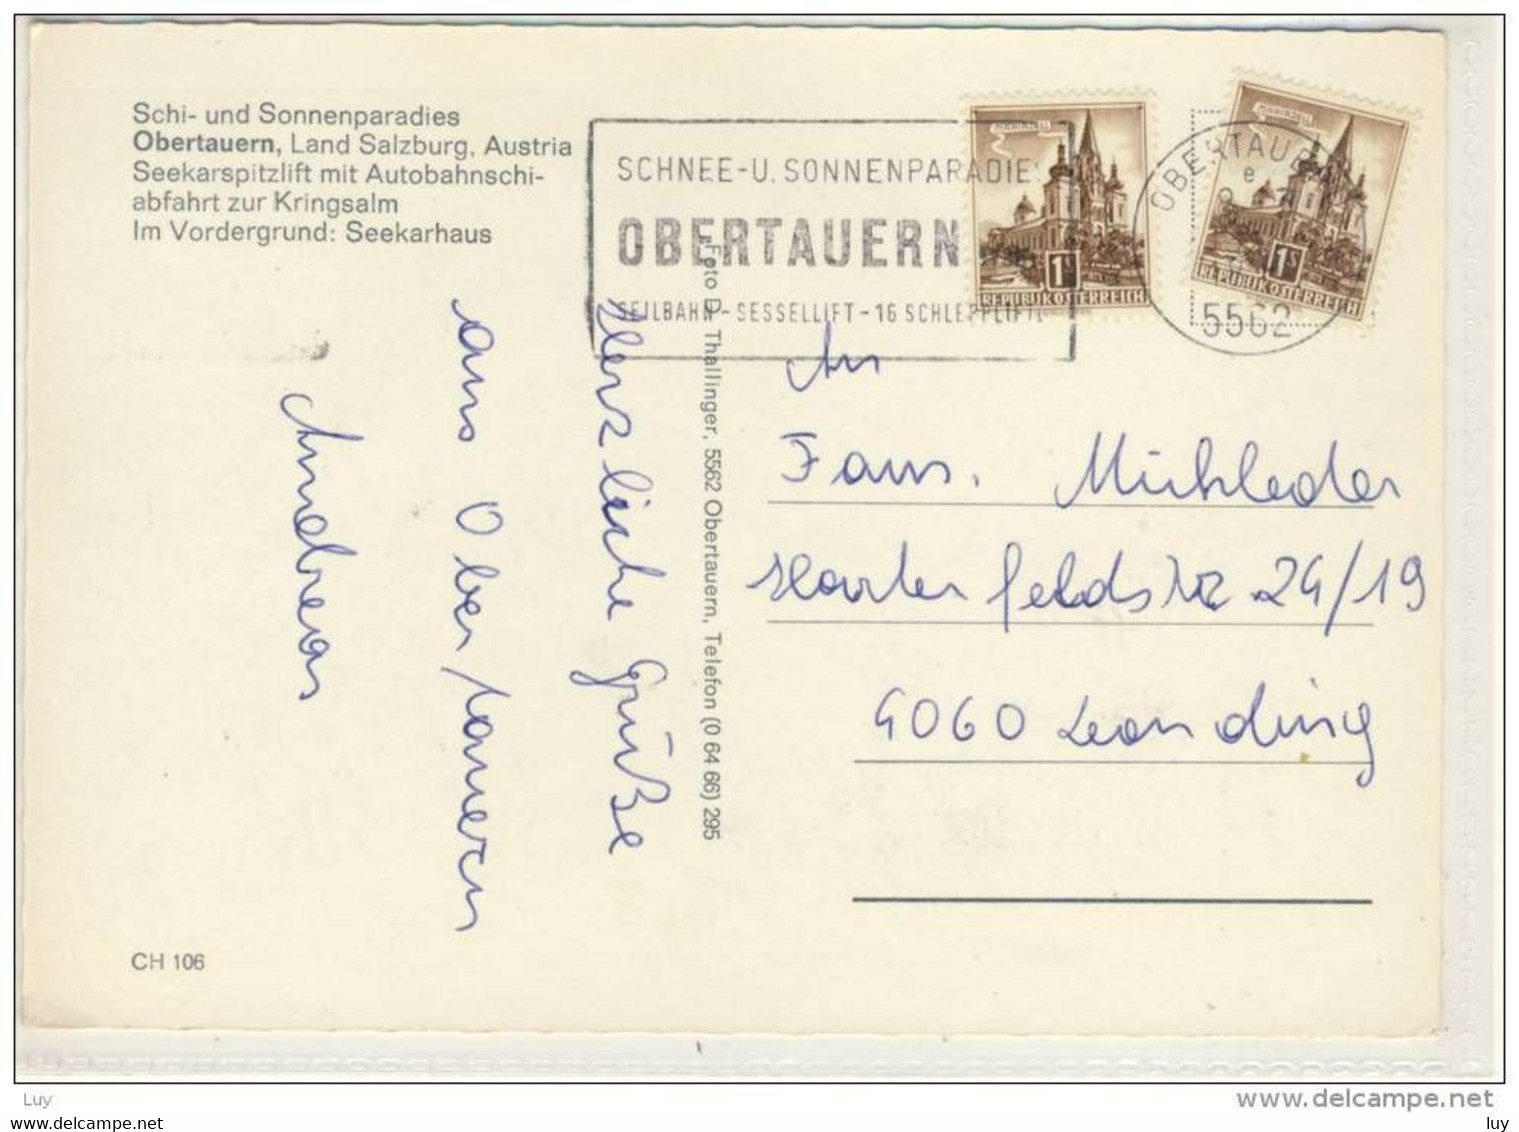 Schi- und Sonnenparadies
Obertauern, Land Salzburg, Austria
Seekarspitzlift mit Autobahnschi-
abfahrt zur Kringsalm
Im Vordergrund: Seekarhaus
SCHNEE-U. SONNENPARADIE
OBERTAUERN
SEILBAHN-SESSELLIFT-16 SCHLEPPLIFTE
MARIAZELL
1S
REPUBLIK ÖSTERREICH
MARIAZELL
1S
REPUBLIK ÖSTERREICH
OBERTAUERN
e
5562
Herzliche Grüße
aus Obertauern
Andreas
Foto D. Thallinger, 5562 Obertauern, Telefon (0 64 66) 295
An
Fam. Mühleder
Harterfeldstr. 24/19
4060 Leonding
CH 106
Luy
www.delcampe.net
www.delcampe.net
luy